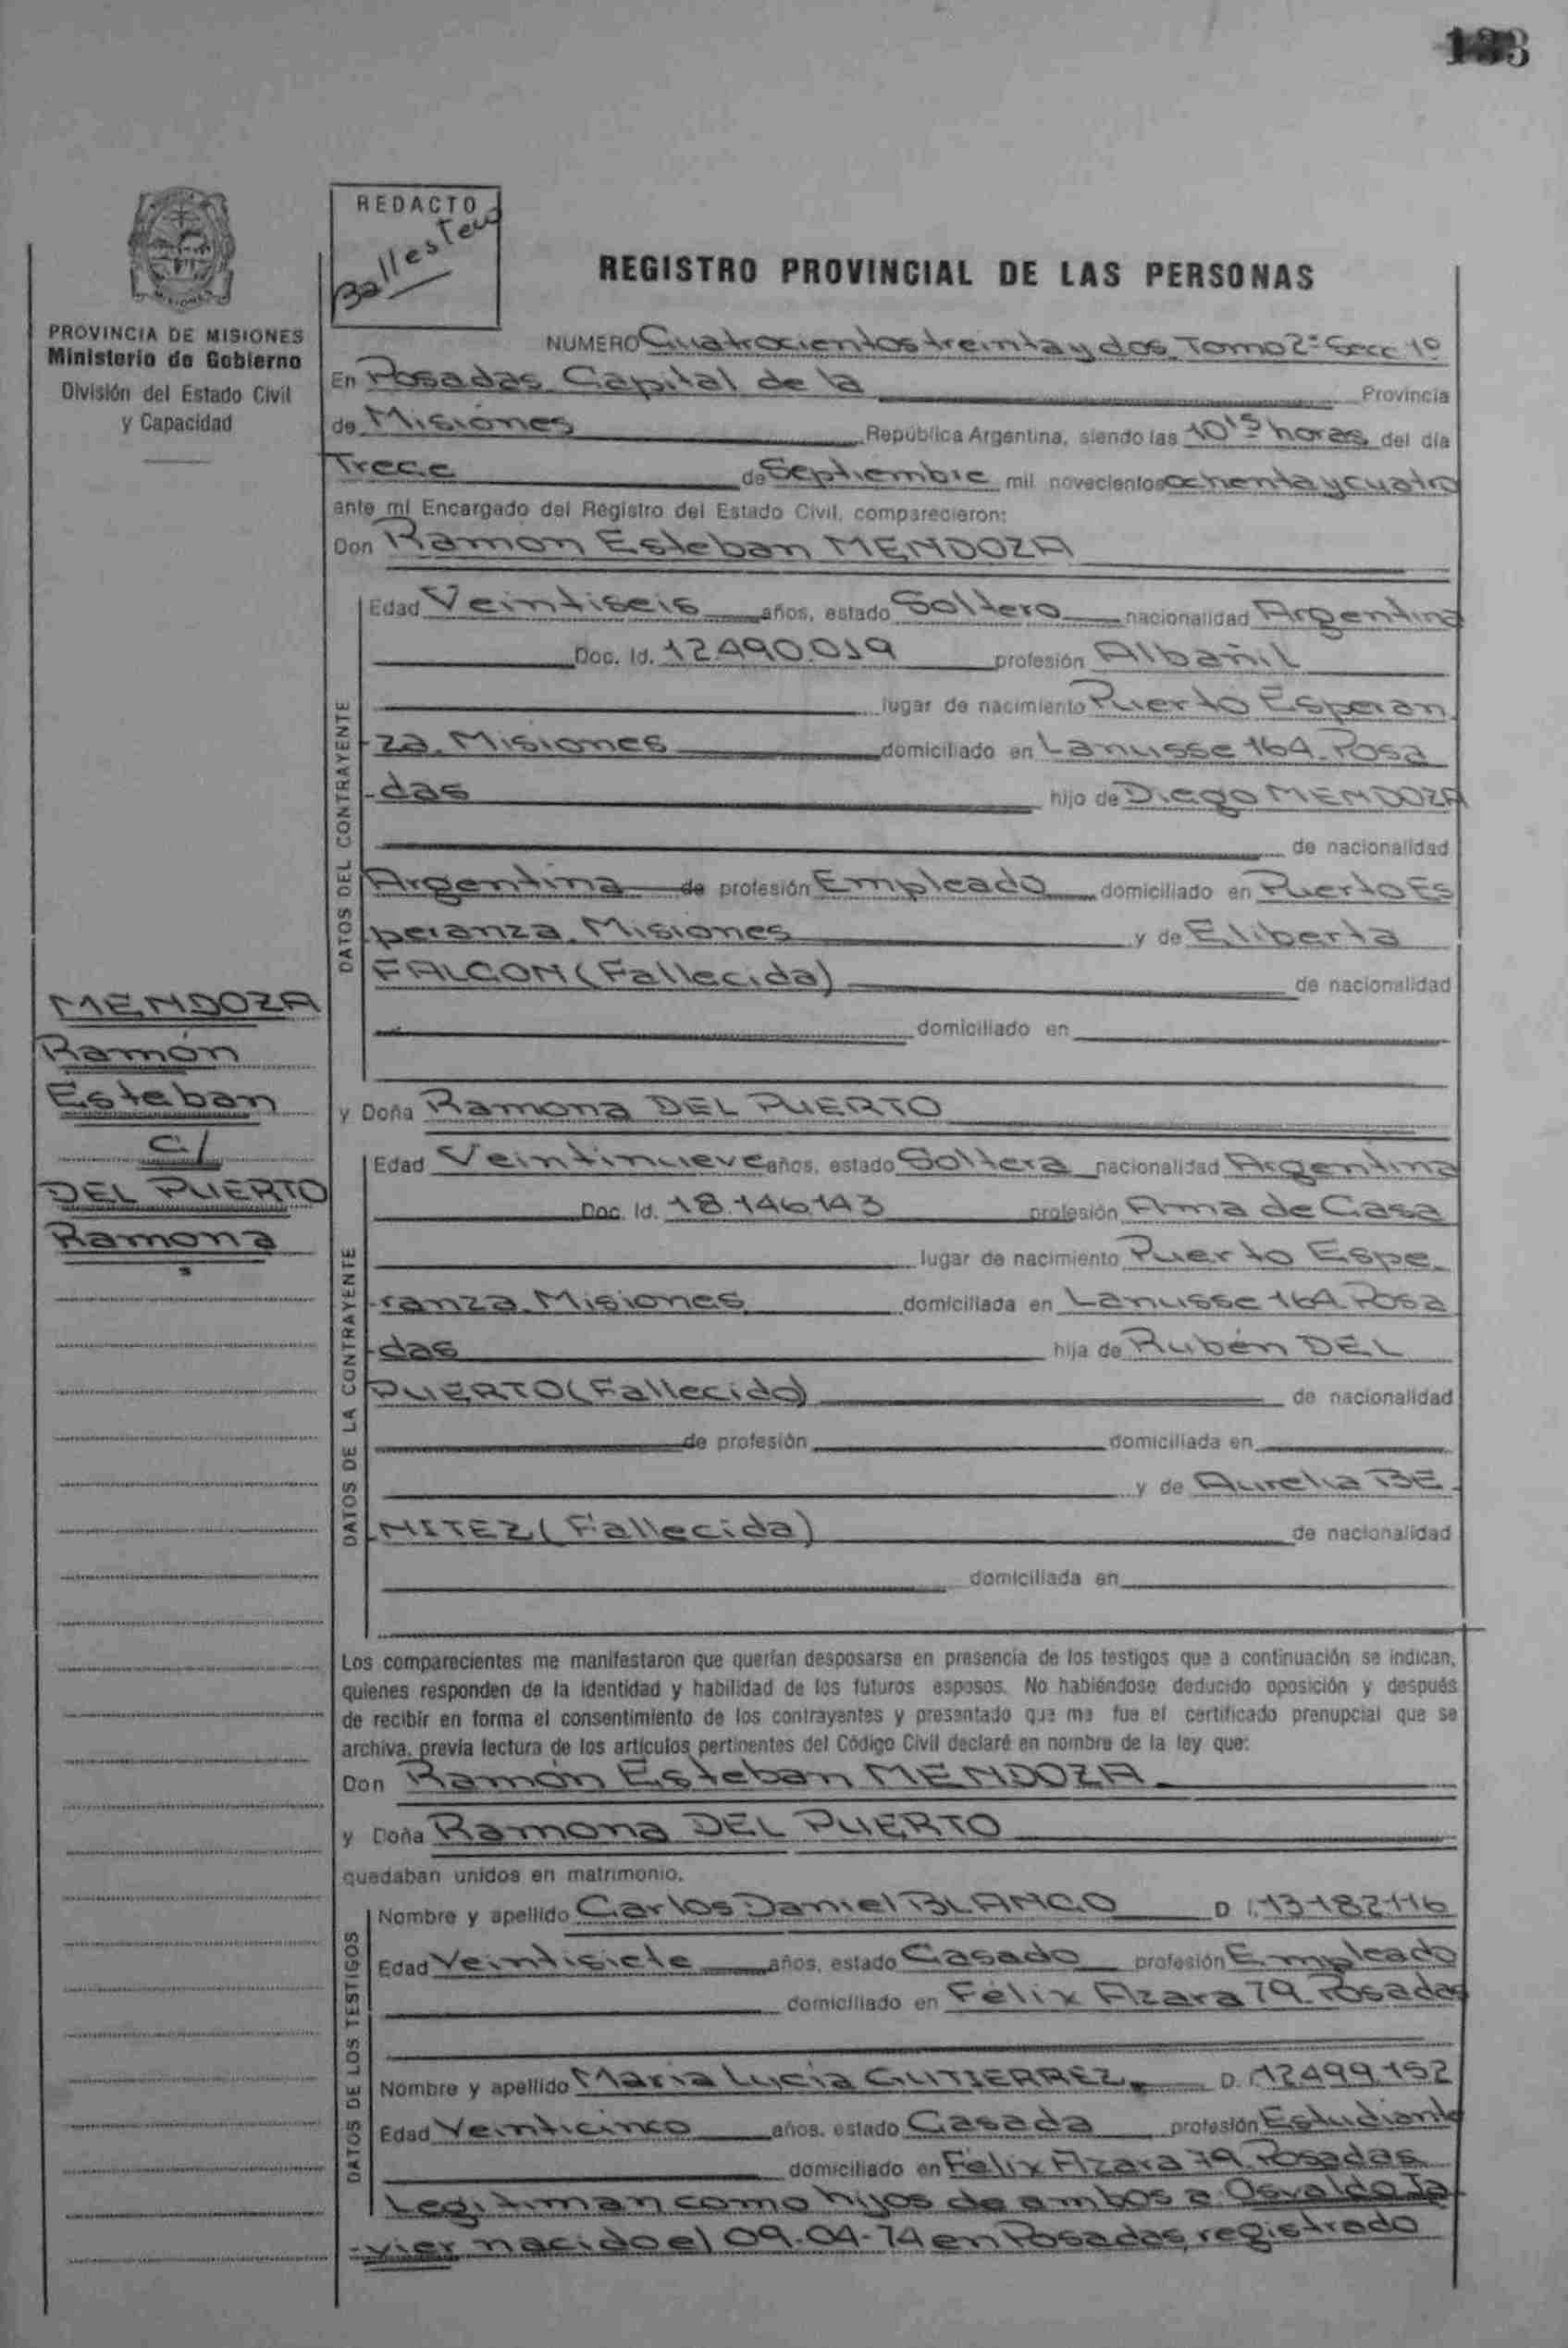 REDACTO
Ballestero
REGISTRO PROVINCIAL DE LAS PERSONAS
PROVINCIA DE MISIONES
Ministerio de Gobierno
División del Estado Civil
y Capacidad
NUMERO Cuatrocientos treinta y dos Tomo 2º Secc 1º
En Posadas Capital de la Provincia
de Misiones República Argentina, siendo las 10 15 horas del día
Trece de Septiembre mil novecientos ochenta y cuatro
ante mí Encargado del Registro del Estado Civil, comparecieron:
Don Ramon Esteban MENDOZA
DATOS DEL CONTRAYENTE
Edad Veintiseis años, estado Soltero nacionalidad Argentina
Doc. Id. 12.490.019 profesión Albañil
lugar de nacimiento Puerto Esperan
za. Misiones domiciliado en Lanusse 164. Posa
-das hijo de Diego MENDOZA
de nacionalidad
Argentina de profesión Empleado domiciliado en Puerto Es
peranza. Misiones y de Eliberta
FALCON (Fallecida) de nacionalidad
domiciliado en
MENDOZA
Ramón
Esteban
c/
DEL PUERTO
Ramona
y Doña Ramona DEL PUERTO
DATOS DE LA CONTRAYENTE
Edad Veintinueve años, estado Soltera nacionalidad Argentina
Doc. Id. 18.146.143 profesión Ama de Casa
lugar de nacimiento Puerto Espe
-ranza. Misiones domiciliada en Lanusse 164. Posa
-das hija de Rubén DEL
PUERTO (Fallecido) de nacionalidad
de profesión domiciliada en
y de Aurelia BE
-NITEZ (Fallecida) de nacionalidad
domiciliada en
Los comparecientes me manifestaron que querían desposarse en presencia de los testigos que a continuación se indican,
quienes responden de la identidad y habilidad de los futuros esposos. No habiéndose deducido oposición y después
de recibir en forma el consentimiento de los contrayentes y presentado que me fue el certificado prenupcial que se
archiva, previa lectura de los artículos pertinentes del Código Civil declaré en nombre de la ley que:
Don Ramón Esteban MENDOZA
y Doña Ramona DEL PUERTO
quedaban unidos en matrimonio.
DATOS DE LOS TESTIGOS
Nombre y apellido Carlos Daniel BLANCO D.I. 13.182.116
Edad Veintisiete años, estado Casado profesión Empleado
domiciliado en Félix Azara 79. Posadas
Nombre y apellido Maria Lucia GUTIERREZ D.I. 12.499.152
Edad Veinticinco años, estado Casada profesión Estudiante
domiciliado en Félix Azara 79. Posadas
Legitiman como hijos de ambos a Osvaldo Ja
-vier nacido el 09-04-74 en Posadas, registrado